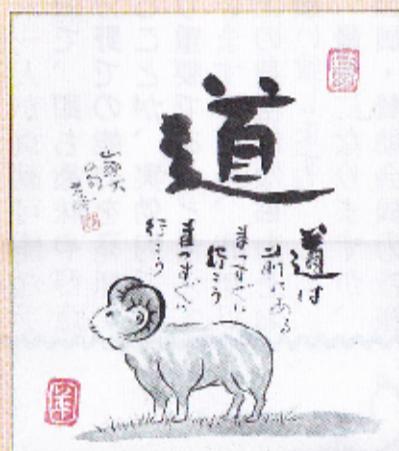 道
道は
前にある
まっすぐに
行こう
まっすぐに
行こう
山頭火
の句